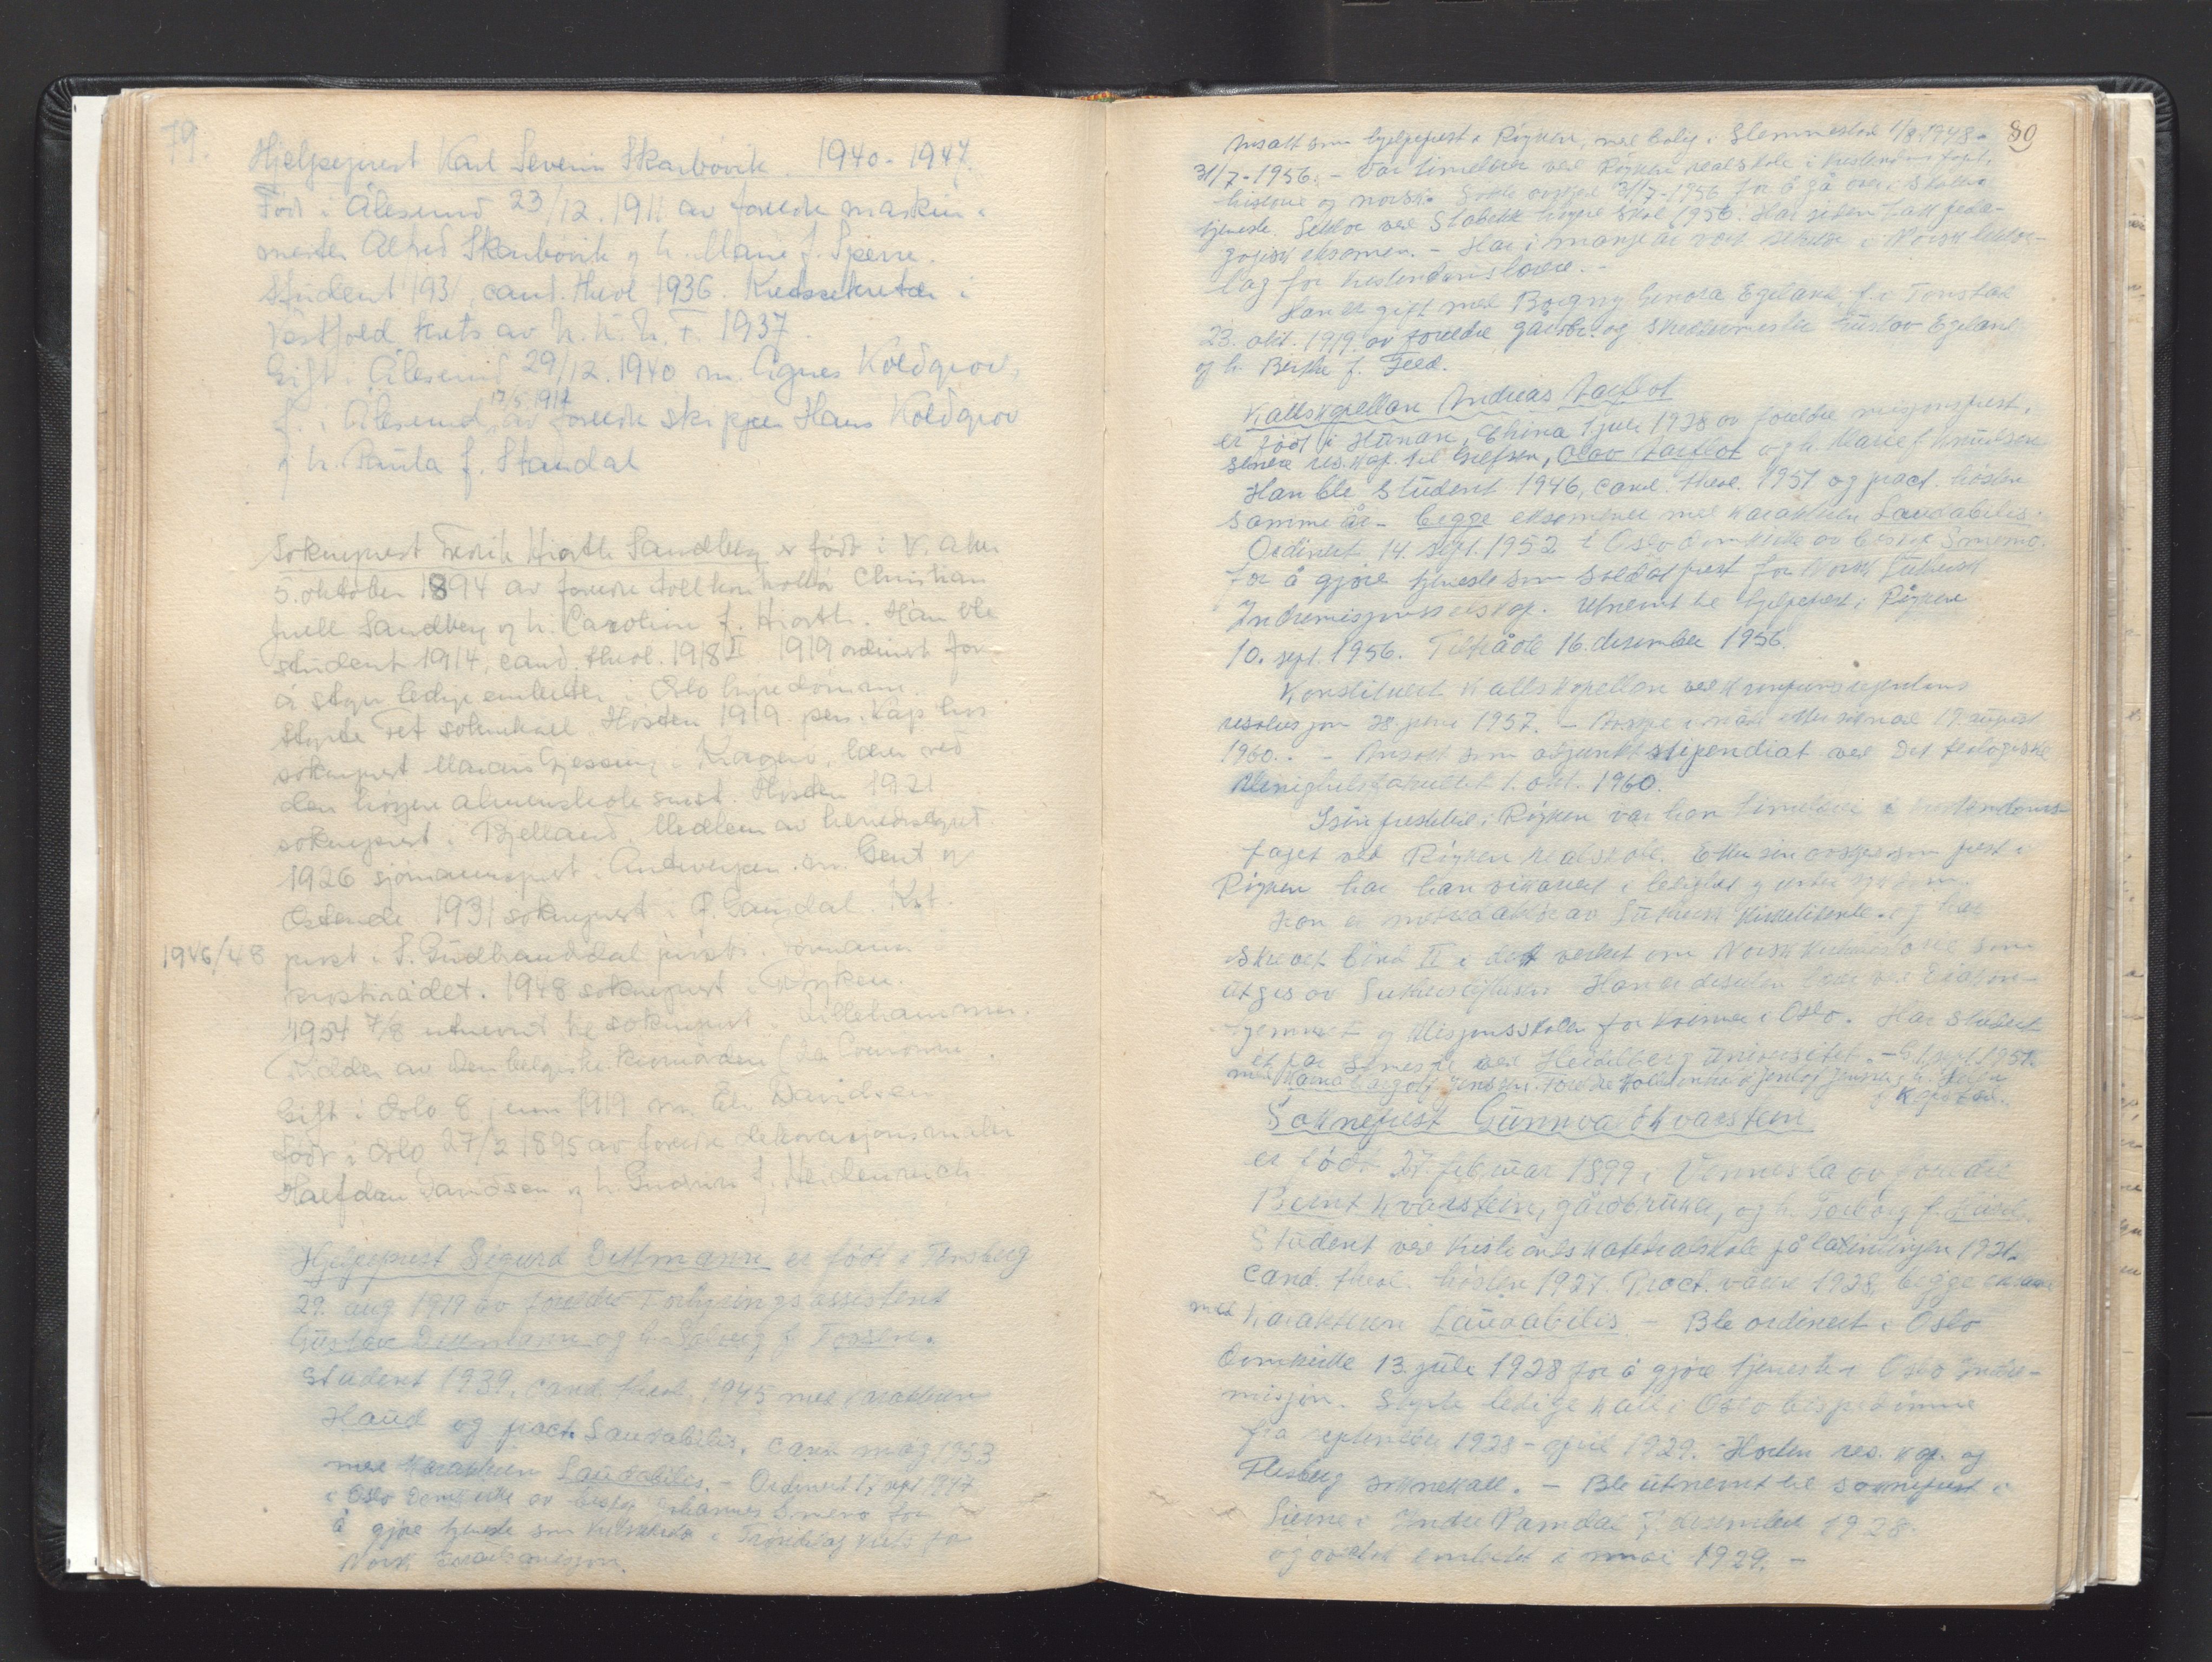 79.
Hjelpeprest Karl Severin Skarbøvik. 1940-1947.
Født i Ålesund 23/12.1911 av foreldre maskin-
mester Alfred Skarbøvik og h. Marie f. Sperre.
Student 1931, cand. theol 1936. Kretssekretær i
Vestfold krets av N.K.U.F. 1937.
Gift i Ålesund 29/12.1940 m. Agnes Koldgrov,
17/5 1917
f. i Ålesund, av foreldre skipper Hans Koldgrov
og h. Paula f. Standal
Sokneprest Fredrik Hiorth Sandberg er født i V. Aker
5. oktober 1894 av foreldre tollkontrollør Christian
Juell Sandberg og h. Caroline f. Hiorth. Han ble
student 1914, cand. theol. 1918 II 1919 ordinert for
å styre ledige embeter i Oslo bispedømme.
Styrte soknekall. Høsten 1919 pers. kap. hos
sokneprest Marius Gjessing i Kragerø, lærer ved
den høyere almenskole smst. Høsten 1921
sokneprest i Bjelland. Medlem av herredsstyret.
1926 sjømannsprest i Antwerpen m. Gent og
Ostende. 1931 sokneprest i Ø. Gausdal. Kst.
1946/48 prost i S. Gudbrandsdal prosti. Formann i
prostirådet. 1948 sokneprest i Røyken.
1954 7/8 utnevnt til sokneprest i Lillehammer.
Ridder av den belgiske kronorden (de Couronne).
Gift i Oslo 8 juni 1919 m. Davidsen
født i Oslo 27/2 1895 av foreldre dekorasjonsmaler
Halfdan Davidsen og h. Gudrun f. Heidenreich
Hjelpeprest Sigurd Dittmann er født i Tønsberg
29. aug 1919 av foreldre Forsyningsassistent
Gustav Dittmann og h. Solveig f. Torsen.
Student 1939, cand. theol. 1945 med karakteren
Haud og pract. Laudabilis. Cand mag 1953
med karakteren Laudabilis. - Ordinert 17 sept 1947
i Oslo Domkirke av biskop Johannes Smemo for
å gjøre tjeneste som kretssekretær i Trøndelag krets for
Norsk Israelsmisjon.
80
Ansatt som hjelpeprest i Røyken, med bolig i Slemmestad 1/8 1948-
31/7-1956. - Var timelærer ved Røyken realskole i kristendoms fagt,
historie og norsk. Søkte avskjed 31/7-1956 for å gå over i skolens
tjeneste. Lektor ved Stabekk høyere skole 1956. Har siden tatt peda-
gogisk eksamen. - Har i mange år vært sekretær i Norsk lektor-
lag for kristendomslærere. -
Han er gift med Borgny Genora Egeland, f. i Tonstad
23. okt. 1919 av foreldre gårdbr. og snekkermester Gustav Egeland
og h. Berthe f. Feed.
Kallskapellan Andreas Aarflot
er født i Hunan, China 1 juli 1928 av foreldre misjonsprest,
senere res. kap. til Grefsen, Olav Aarflot og h. Marie f. Knudsen
Han ble student 1946, cand. theol. 1951 og pract. høsten
samme år - begge eksamener med karakteren Laudabilis.
Ordinert 14. sept. 1952 i Oslo domkirke av biskop Smemo
for å gjøre tjeneste som soldatprest for Norsk Luthersk
Indremisjonsselskap. Utnevnt til hjelpeprest i Røyken
10. sept. 1956. Tiltrådte 16. desember 1956.
Konstituert kallskapellan ved kronprinsregentens
resolusjon 28. juni 1957. - Avskjed i nåde etter søknad 19. august
1960. - Ansatt som adjunktstipendiat ved Det teologiske
Menighetsfakultet 1. okt. 1960.
I sin prestetid i Røyken var han timelærer i kristendoms-
faget ved Røyken realskole. Etter sin avskjed som prest i
Røyken har han vikariert i ledighet og under sykdom.
Han er medredaktør av Luthersk Kirketidende og har
skrevet bind II i det verket om Norsk kirkehistorie som
utgis av Lutherstiftelsen. Han er dessuten lærer ved Diakon-
hjemmet og Misjonsskolen for kvinner i Oslo. Har studert
et par semestre ved Heidelberg Universitet. - G. 1 sept. 1951
Sokneprest Gunnvald Kvarstein
er født 27. februar 1899 i Vennesla av foreldre
Bernt Kvarstein, gårdbruker, og h. Torborg f.
Student ved Kristiansands katedralskole på latinlinjen 1921.
Cand. theol. høsten 1927. Pract. våren 1928, begge eksamen
med karakteren Laudabilis - Ble ordinert i Oslo
domkirke 13. juli 1928 for å gjøre tjeneste i Oslo indre-
misjon. Styrte ledige kall i Oslo bispedømme
fra september 1928 - april 1929. Horten res. kap. og
Flesberg soknekall. - Ble utnevnt til sokneprest i
Lierne i Indre Namdal 7 desember 1928.
og overtok embetet i mai 1929. -